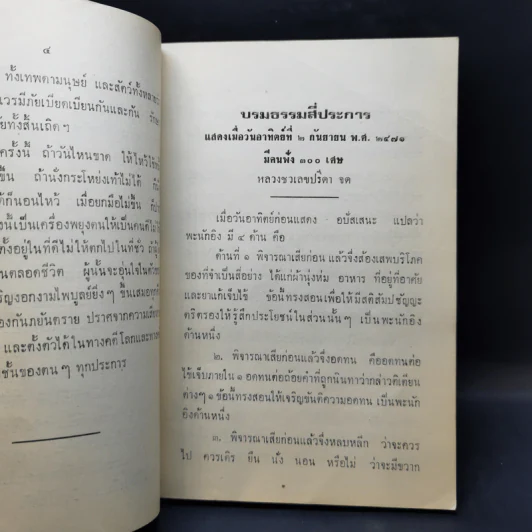 ๔
ทั้งเทพดามนุษย์ และสัตว์ทั้งหลาย
เวรมีภัยเบียดเบียนกันและกัน
ภัยทั้งสิ้นเถิดๆ
ครั้งนี้ ถ้าวันไหนขาด ให้ไหว้
ขึ้น ถ้านั่งกระโหย่งเท้าไม่ได้
ได้ก็นอนไหว้ เมื่อยกมือไม่ขึ้น
นี้เป็นเครื่องพยุงตนให้เป็นคนดี
ตั้งอยู่ในที่ดีไม่ให้ตกไปในที่ชั่ว
ตลอดชีวิต ผู้นั้นจะอุ่นใจ
เจริญงอกงามไพบูลย์ยิ่งๆ ขึ้นเสมอ
ป้องกันภยันตราย ปราศจากความ
และตั้งตัวได้ในทางคดีโลกและทาง
ชั้นของตนๆ ทุกประการ
บรมธรรมสี่ประการ
แสดงเมื่อวันอาทิตย์ที่ ๒ กันยายน พ.ศ. ๒๔๗๑
มีคนฟัง ๓๐๐ เศษ
หลวงชวเลขปรีดา จด
เมื่อวันอาทิตย์ก่อนแสดง อปัสเสนะ แปลว่า
พะนักอิง มี ๔ ด้าน คือ
ด้านที่ ๑ พิจารณาเสียก่อน แล้วจึงส้องเสพบริโภค
ของที่จำเป็นสี่อย่าง ได้แก่ผ้านุ่งห่ม อาหาร ที่อยู่ที่อาศัย
และยาแก้เจ็บไข้ ข้อนี้ทรงสอนเพื่อให้มีสติสัมปชัญญะ
ตริตรองให้รู้สึกประโยชน์ในส่วนนั้นๆ เป็นพะนักอิง
ด้านหนึ่ง
๒. พิจารณาเสียก่อนแล้วจึงอดทน คืออดทนต่อ
ไข้เจ็บภายใน ๑ อดทนต่อถ้อยคำที่ถูกนินทาว่ากล่าวติเตียน
ต่างๆ ๑ ข้อนี้ทรงสอนให้เจริญขันติความอดทน เป็นพะนัก
อิงด้านหนึ่ง
๓. พิจารณาเสียก่อนแล้วจึงหลบหลีก ว่าจะควร
ไป ควรเดิร ยืน นั่ง นอน หรือไม่ ว่าจะมีขวาก